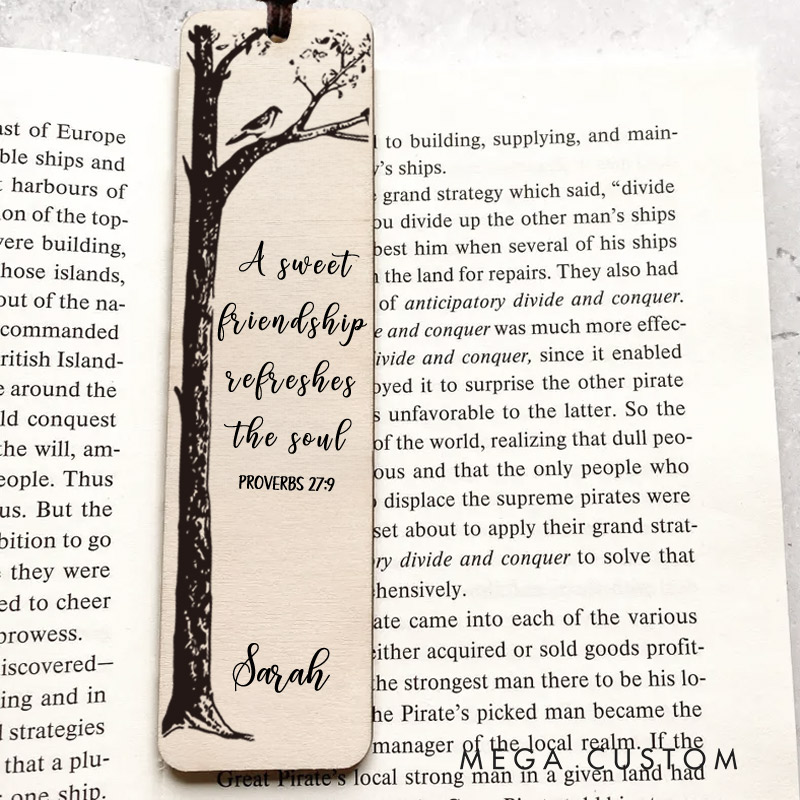 ast of Europe
ble ships and
harbours of
ion of the top-
vere building,
hose islands,
out of the na-
commanded
ritish Island-
around the
ld conquest
the will, am-
eople. Thus
us. But the
bition to go
they were
ed to cheer
prowess.
iscovered—
ing and in
strategies
that a plu-
one ship.
A sweet
friendship
refreshes
the soul
PROVERBS 27:9
Sarah
to building, supplying, and main-
y's ships.
grand strategy which said, “divide
ou divide up the other man's ships
best him when several of his ships
the land for repairs. They also had
of anticipatory divide and conquer.
e and conquer was much more effec-
ivide and conquer, since it enabled
oyed it to surprise the other pirate
s unfavorable to the latter. So the
of the world, realizing that dull peo-
ous and that the only people who
displace the supreme pirates were
set about to apply their grand strat-
ry divide and conquer to solve that
hensively.
ate came into each of the various
either acquired or sold goods profit-
the strongest man there to be his lo-
he Pirate's picked man became the
manager of the local realm. If the
Great Pirate's local strong man in a given land had
MEGA CUSTOM